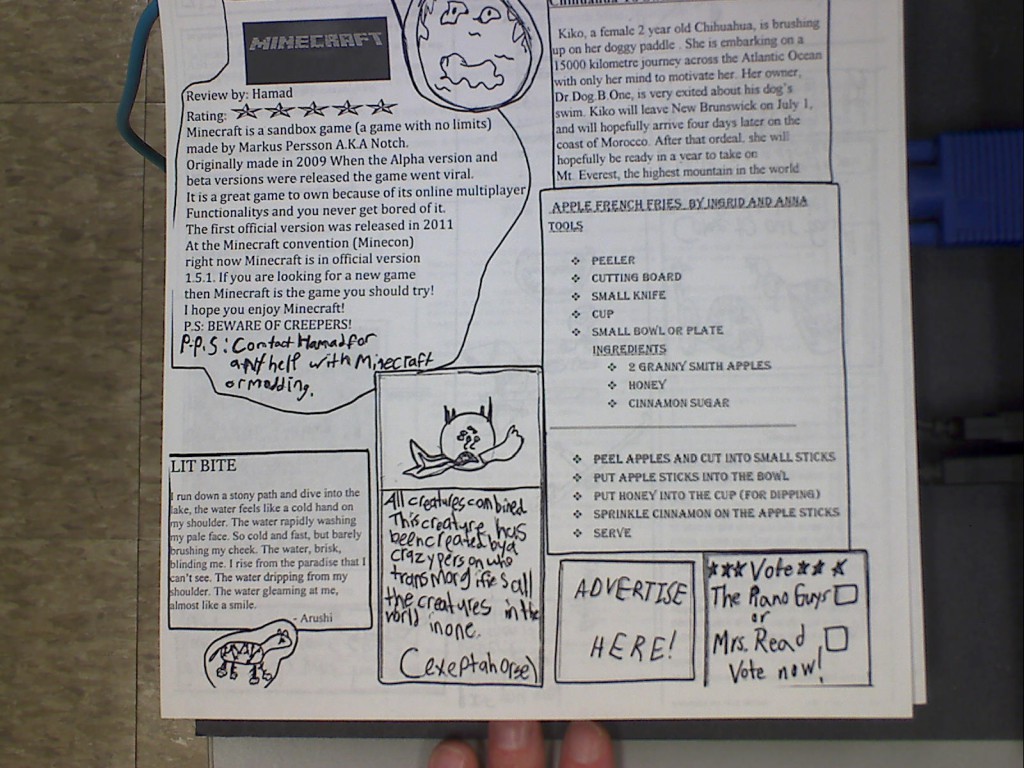 MINECRAFT
Review by: Hamad
Rating:
Minecraft is a sandbox game (a game with no limits)
made by Markus Persson A.K.A Notch.
Originally made in 2009 When the Alpha version and
beta versions were released the game went viral.
It is a great game to own because of its online multiplayer
Functionalitys and you never get bored of it.
The first official version was released in 2011
At the Minecraft convention (Minecon)
right now Minecraft is in official version
1.5.1. If you are looking for a new game
then Minecraft is the game you should try!
I hope you enjoy Minecraft!
P.S: BEWARE OF CREEPERS!
P.P.S: Contact Hamad for
any help with Minecraft
or modding.
LIT BITE
I run down a stony path and dive into the
lake, the water feels like a cold hand on
my shoulder. The water rapidly washing
my pale face. So cold and fast, but barely
brushing my cheek. The water, brisk,
blinding me. I rise from the paradise that I
can't see. The water dripping from my
shoulder. The water gleaming at me,
almost like a smile.
- Arushi
All creatures combined
This creature has
been created by a
crazy person who
transmorgifies all
the creatures in the
world in one.
(exept a horse)
Kiko, a female 2 year old Chihuahua, is brushing
up on her doggy paddle . She is embarking on a
15000 kilometre journey across the Atlantic Ocean
with only her mind to motivate her. Her owner,
Dr.Dog.B.One, is very exited about his dog's
swim. Kiko will leave New Brunswick on July 1,
and will hopefully arrive four days later on the
coast of Morocco. After that ordeal, she will
hopefully be ready in a year to take on
Mt. Everest, the highest mountain in the world
APPLE FRENCH FRIES BY INGRID AND ANNA
TOOLS
❖ PEELER
❖ CUTTING BOARD
❖ SMALL KNIFE
❖ CUP
❖ SMALL BOWL OR PLATE
INGREDIENTS
❖ 2 GRANNY SMITH APPLES
❖ HONEY
❖ CINNAMON SUGAR
❖ PEEL APPLES AND CUT INTO SMALL STICKS
❖ PUT APPLE STICKS INTO THE BOWL
❖ PUT HONEY INTO THE CUP (FOR DIPPING)
❖ SPRINKLE CINNAMON ON THE APPLE STICKS
❖ SERVE
ADVERTISE
HERE!
★★★ Vote ★★ ★
The Piano Guys
or
Mrs. Read
Vote now!